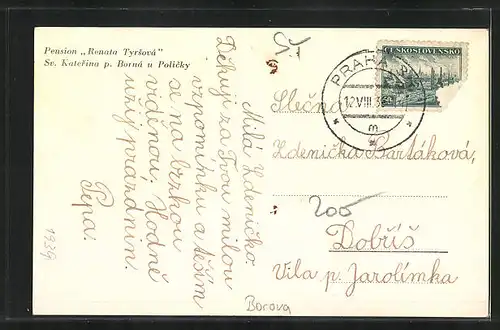 Pension „Renata Tyršová"
Sv. Kateřina p. Borná u Poličky
Milá Zdeničko.
Děkuji za Tvou milou
vzpomínku a těším
se na brzkou
viděnou; Hodně
užij prazdnin.
Pepa.
1939
ČESKOSLOVENSKO
PRAHA
12.VIII.39
m
Slečna
Zdenička Bartáková,
200
Dobříš
Vila p. Jarolímka
Borova